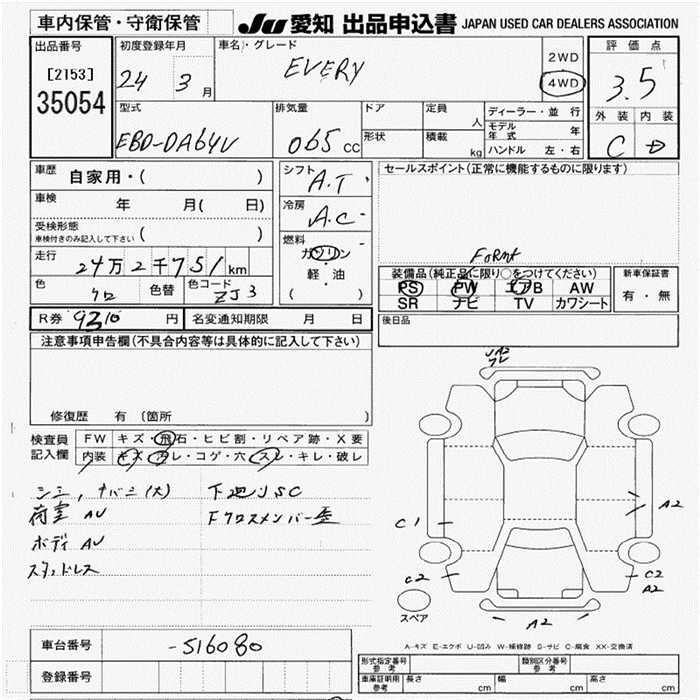 車内保管・守衛保管
JU 愛知 出品申込書 JAPAN USED CAR DEALERS ASSOCIATION
出品番号
[2153]
35054
初度登録年月
24 3 月
車名・グレード
EVERY
2WD
4WD
評価点
3.5
外装 内装
C D
型式
EBD-DA64V
排気量
065 cc
ドア
形状
定員 人
積載 kg
ディーラー・並行
モデル年式 年
ハンドル 左・右
車歴
自家用・( )
車検 年 月( 日)
受検形態
車検付きのみ記入して下さい ( )
走行
24万2千751 km
色
色替
色コード
ZJ3
シフト
A.T
冷房
A.C
燃料
ガソリン
・
軽・油
( )
セールスポイント(正常に機能するものに限ります)
装備品(純正品に限り○をつけてください)
PS PW エアB AW
SR ナビ TV カワシート
新車保証書
有・無
R券 9310 円
名変通知期限 月 日
後日品
注意事項申告欄(不具合内容等は具体的に記入して下さい)
修復歴 有 〔箇所 〕
検査員記入欄
FW キズ・飛石・ヒビ割・リペア跡・X要
内装 キズ・汚レ・コゲ・穴・スレ・キレ・破レ
荷室 AU
ボディ AU
スタッドレス
下廻りSC
Fクロスメンバー歪
A2
C1
A2
C2
C2
A2
A2
スペア
A-キズ E-エクボ U-凹み W-補修跡 S-サビ C-腐食 XX-交換済
車台番号
-516080
登録番号
型式指定番号 参考
類別区分番号 参考
車庫証明用 参考
長さ cm
幅 cm
高さ cm